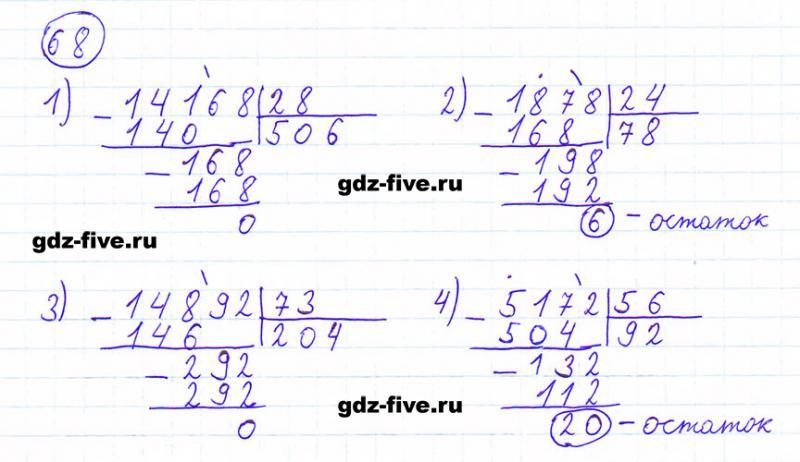 68
1) - 14168 | 28
140 | 506
- 168
168
0
gdz-five.ru
2) - 1878 | 24
168 | 78
- 198
192
6 - остаток
gdz-five.ru
3) - 14892 | 73
146 | 204
- 292
292
0
4) - 5172 | 56
504 | 92
- 132
112
20 - остаток
gdz-five.ru